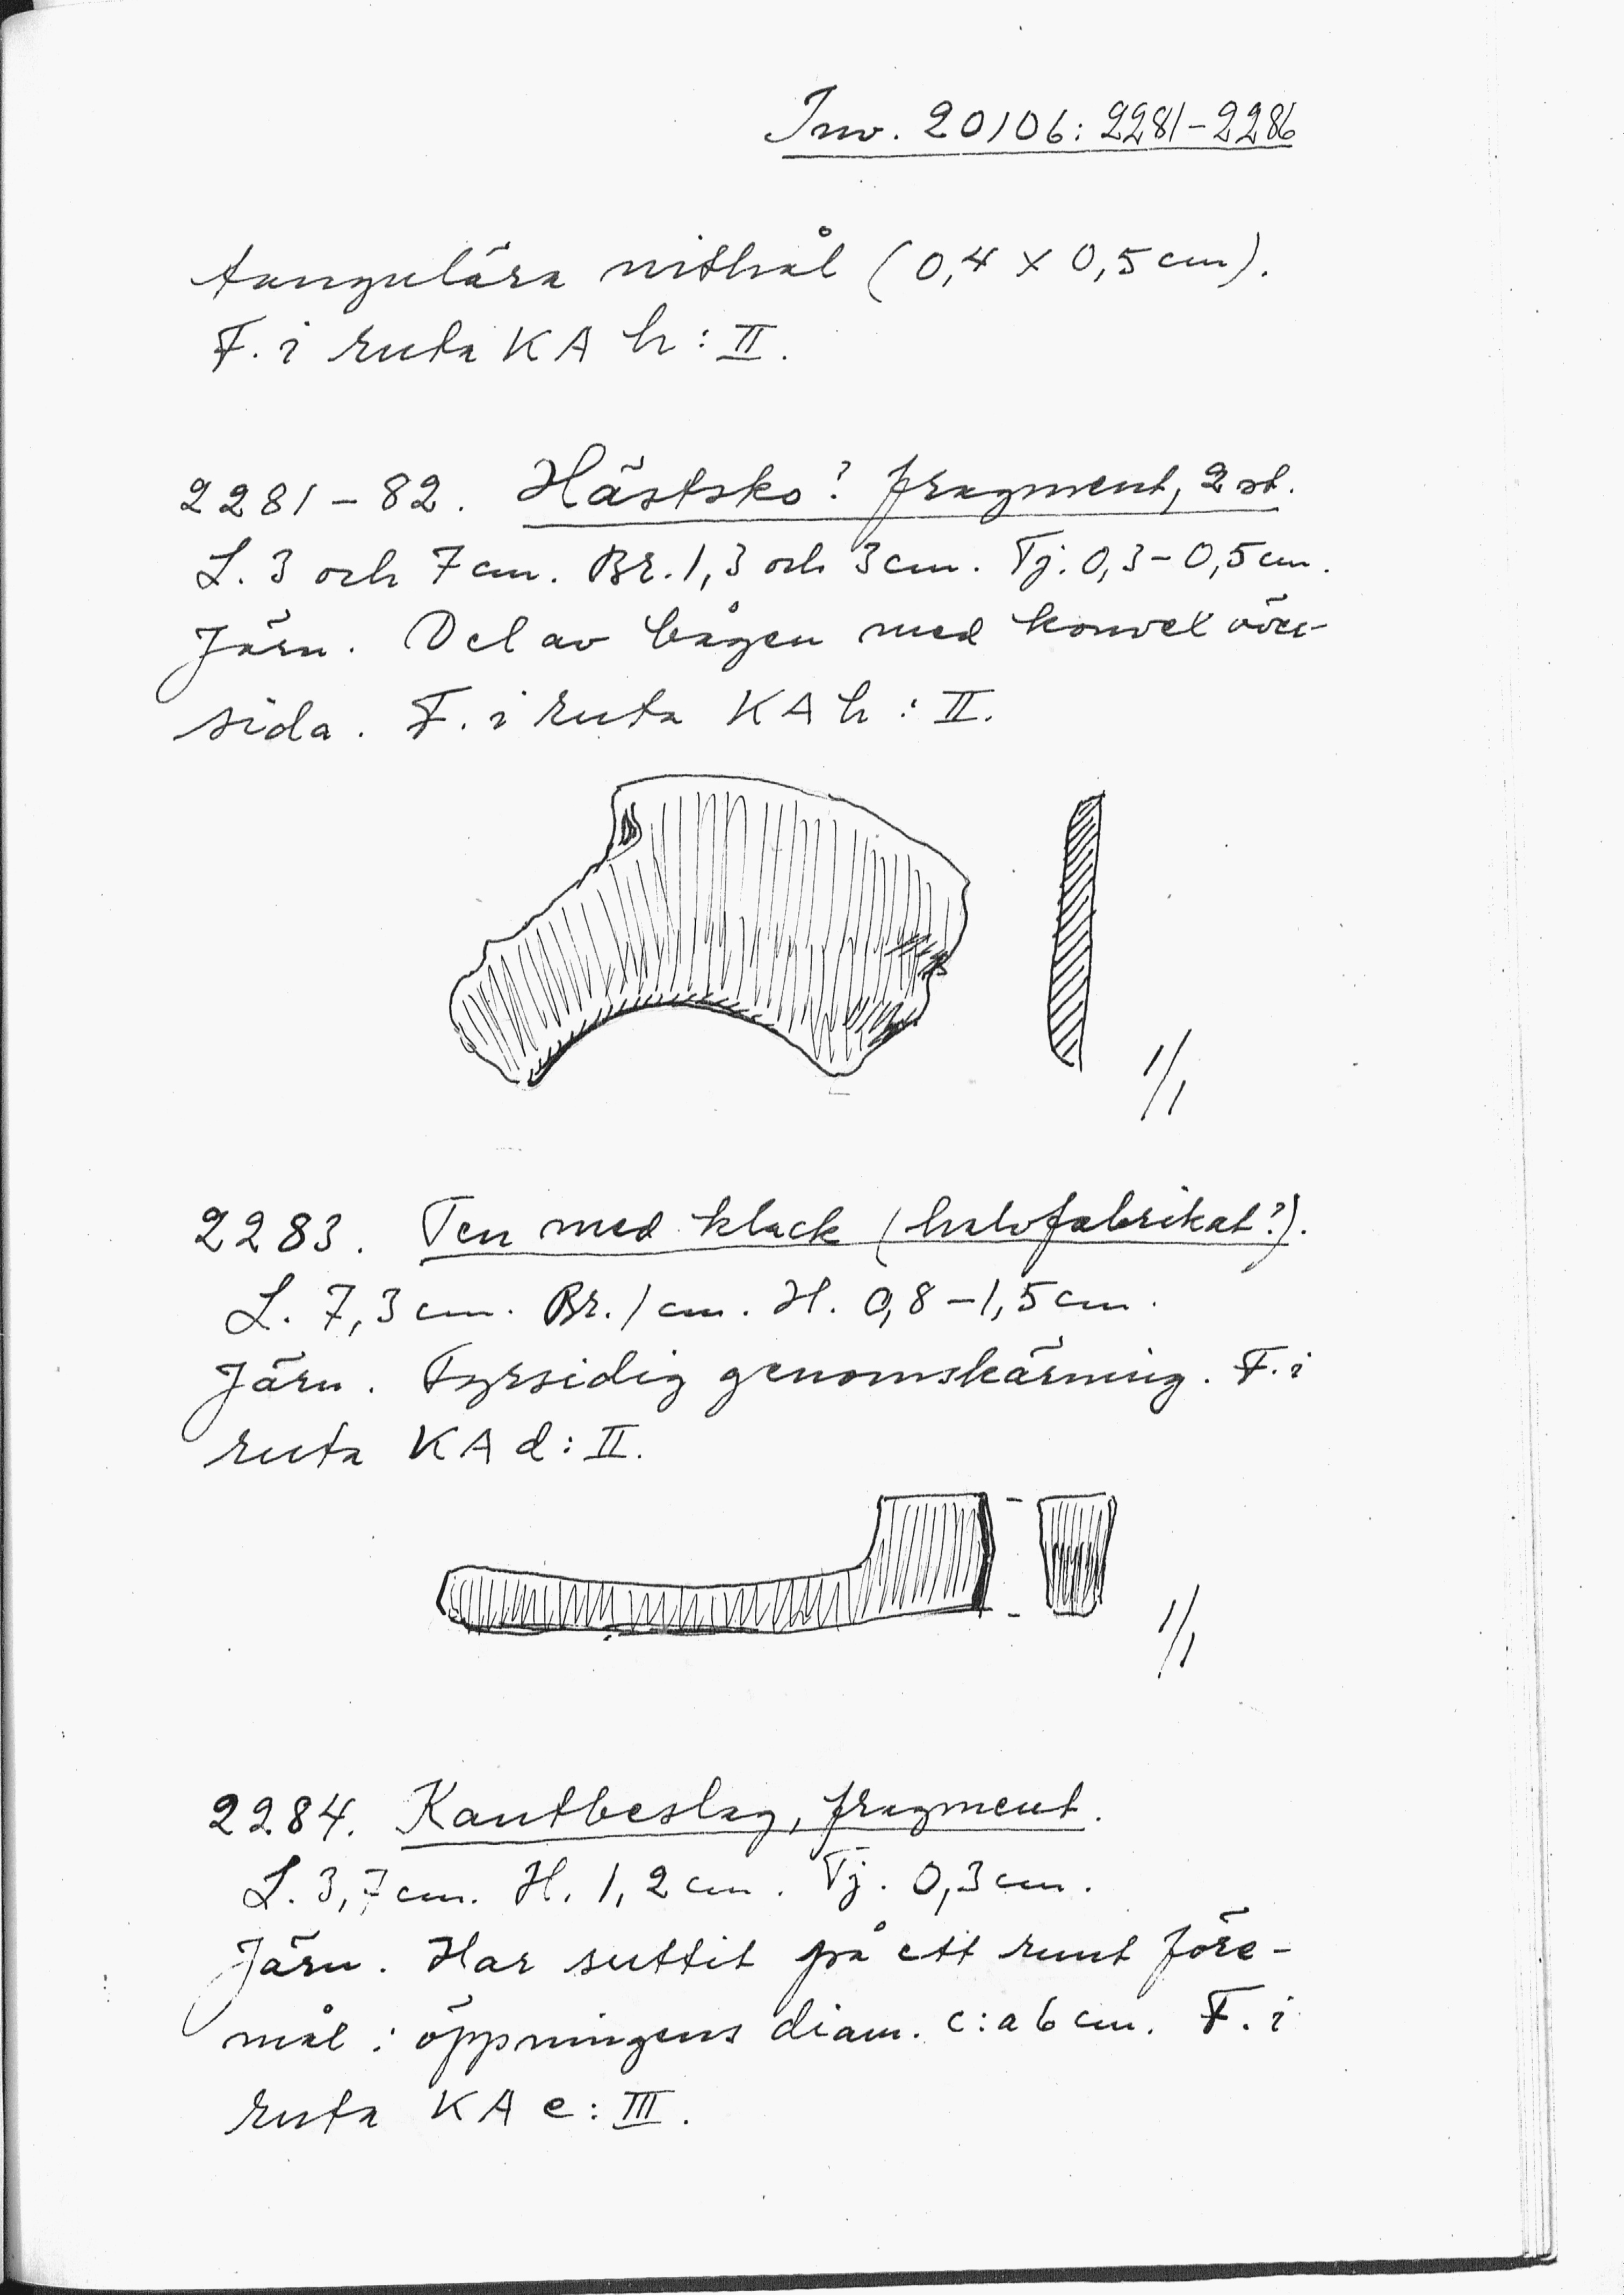 Inv. 20106: 2281-2286
tangulära nithål (0,4 x 0,5 cm).
F. i ruta KA h: II.
2281-82. Hästsko? fragment, 2 st.
L. 3 och 7 cm. Br. 1,3 och 3 cm. Tj. 0,3-0,5 cm.
Järn. Del av bågen med konvex över-
sida. F. i ruta KA h: II.
1/1
2283. Ten med klack (halvfabrikat?).
L. 7,3 cm. Br. 1 cm. H. 0,8-1,5 cm.
Järn. Fyrsidig genomskärning. F. i
ruta KA d: II.
1/1
2284. Kantbeslag, fragment.
L. 3,7 cm. H. 1,2 cm. Tj. 0,3 cm.
Järn. Har suttit på ett runt före-
mål: öppningens diam. c:a 6 cm. F. i
ruta KA e: III.